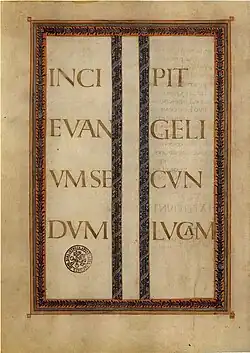 INCI PIT
EVAN GELI
VM SE CVN
DVM LVCAM